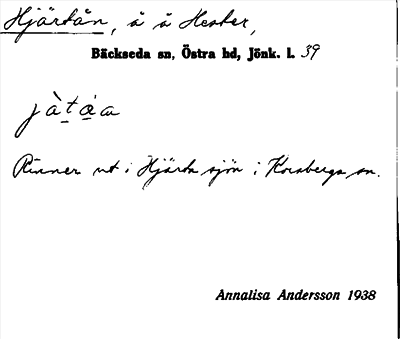 Hjärtån, å å Hester,
Bäckseda sn, Östra hd, Jönk. l. 39
Rinner ut i Hjärtasjön i Korsberga sn.
Annalisa Andersson 1938